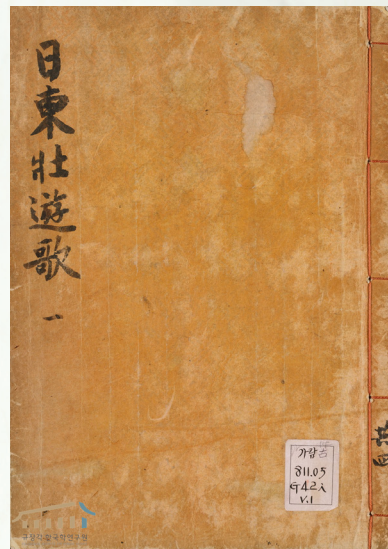 日東壯遊歌 一
共四
가람 古
811.05
G42i
V.1
규장각한국학연구원